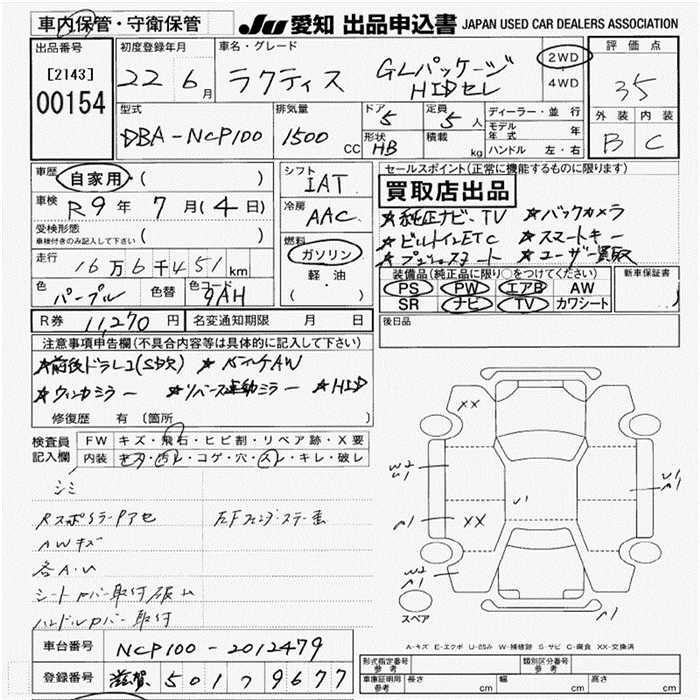 車内保管・守衛保管
JU 愛知 出品申込書 JAPAN USED CAR DEALERS ASSOCIATION
出品番号
[2143]
00154
初度登録年月
22年 6月
車名・グレード
ラクティス GLパッケージ
HIDセレ
2WD
4WD
評価点
35
外装 内装
B C
型式
DBA-NCP100
排気量
1500 CC
ドア 5
形状 HB
定員 5人
積載 kg
ディーラー・並行
モデル年式 年
ハンドル 左・右
車歴 自家用 ( )
車検 R9年 7月(4日)
受検形態
車検付きのみ記入して下さい ( )
走行 16万6千451km
色 パープル 色替 色コード 9AH
シフト IAT
冷房 AAC
燃料
ガソリン
軽・油
( )
セールスポイント(正常に機能するものに限ります)
買取店出品
★純正ナビ、TV ★バックカメラ
★ビルトインETC ★スマートキー
★プッシュスタート ★ユーザー買取
装備品(純正品に限り○をつけてください)
PS PW エアB AW
SR ナビ TV カワシート
新車保証書
後日品
R券 11,270円 名変通知期限 月 日
注意事項申告欄(不具合内容等は具体的に記入して下さい)
★前後ドラレコ(SD欠) ★
AW
★ウィンカミラー ★リバース連動ミラー ★HID
修復歴 有 〔箇所 〕
検査員記入欄
FW キズ・飛石・ヒビ割・リペア跡・X要
内装 キズ・汚レ・コゲ・穴・スレ・キレ・破レ
シミ
AWキズ
各A・U
シート
ハンドルカバー取付
XX
W2
U1
A1
XX
U1
U1
A1
W2
A1
A1
スペア
A-キズ E-エクボ U-凹み W-補修跡 S-サビ C-腐食 XX-交換済
車台番号 NCP100-2012479
登録番号 滋賀 501 つ 9677
形式指定番号 参考
類別区分番号 参考
車庫証明用 参考 長さ cm 幅 cm 高さ cm